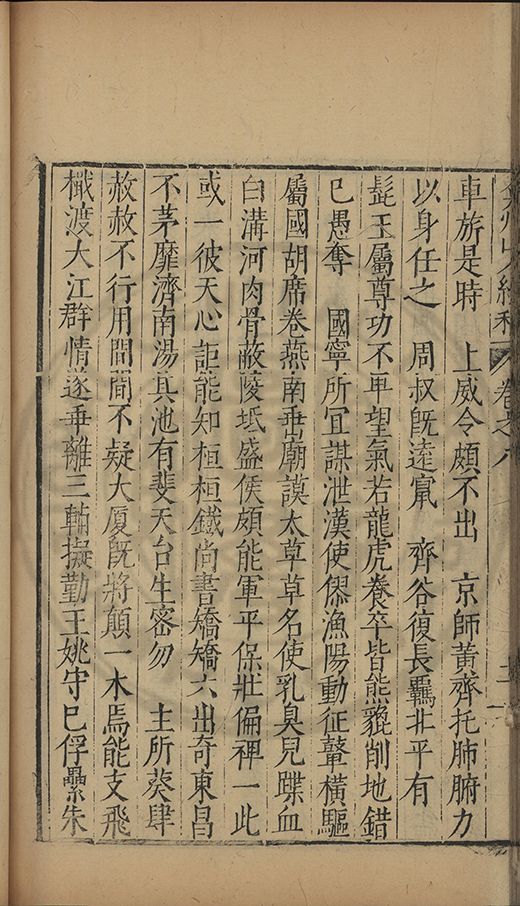 卷之八
車旅是時 上威令頗不出 京師黃齊托肺腑力
以身任之 周叔旣遠竄 齊谷復長羈北平有
髭王屬尊功不再望氣若龍虎養卒皆熊貔削地錯
已愚奪 國寧所宜謀泄漢使僇漁陽動征鼙橫驅
屬國胡席卷燕南垂廟謨太草草名使乳臭兒蹀血
白溝河肉骨蔽陵坻盛侯頗能軍平保壯偏裨一此
或一彼天心詎能知桓桓鐵尚書矯矯六出奇東昌
不茅靡濟南湯其池有斐天台生密勿 主所葵肆
赦赦不行用間間不疑大厦旣將顛一木焉能支飛
檝渡大江群情遂乖離三輔擬勤王姚守已俘纍朱